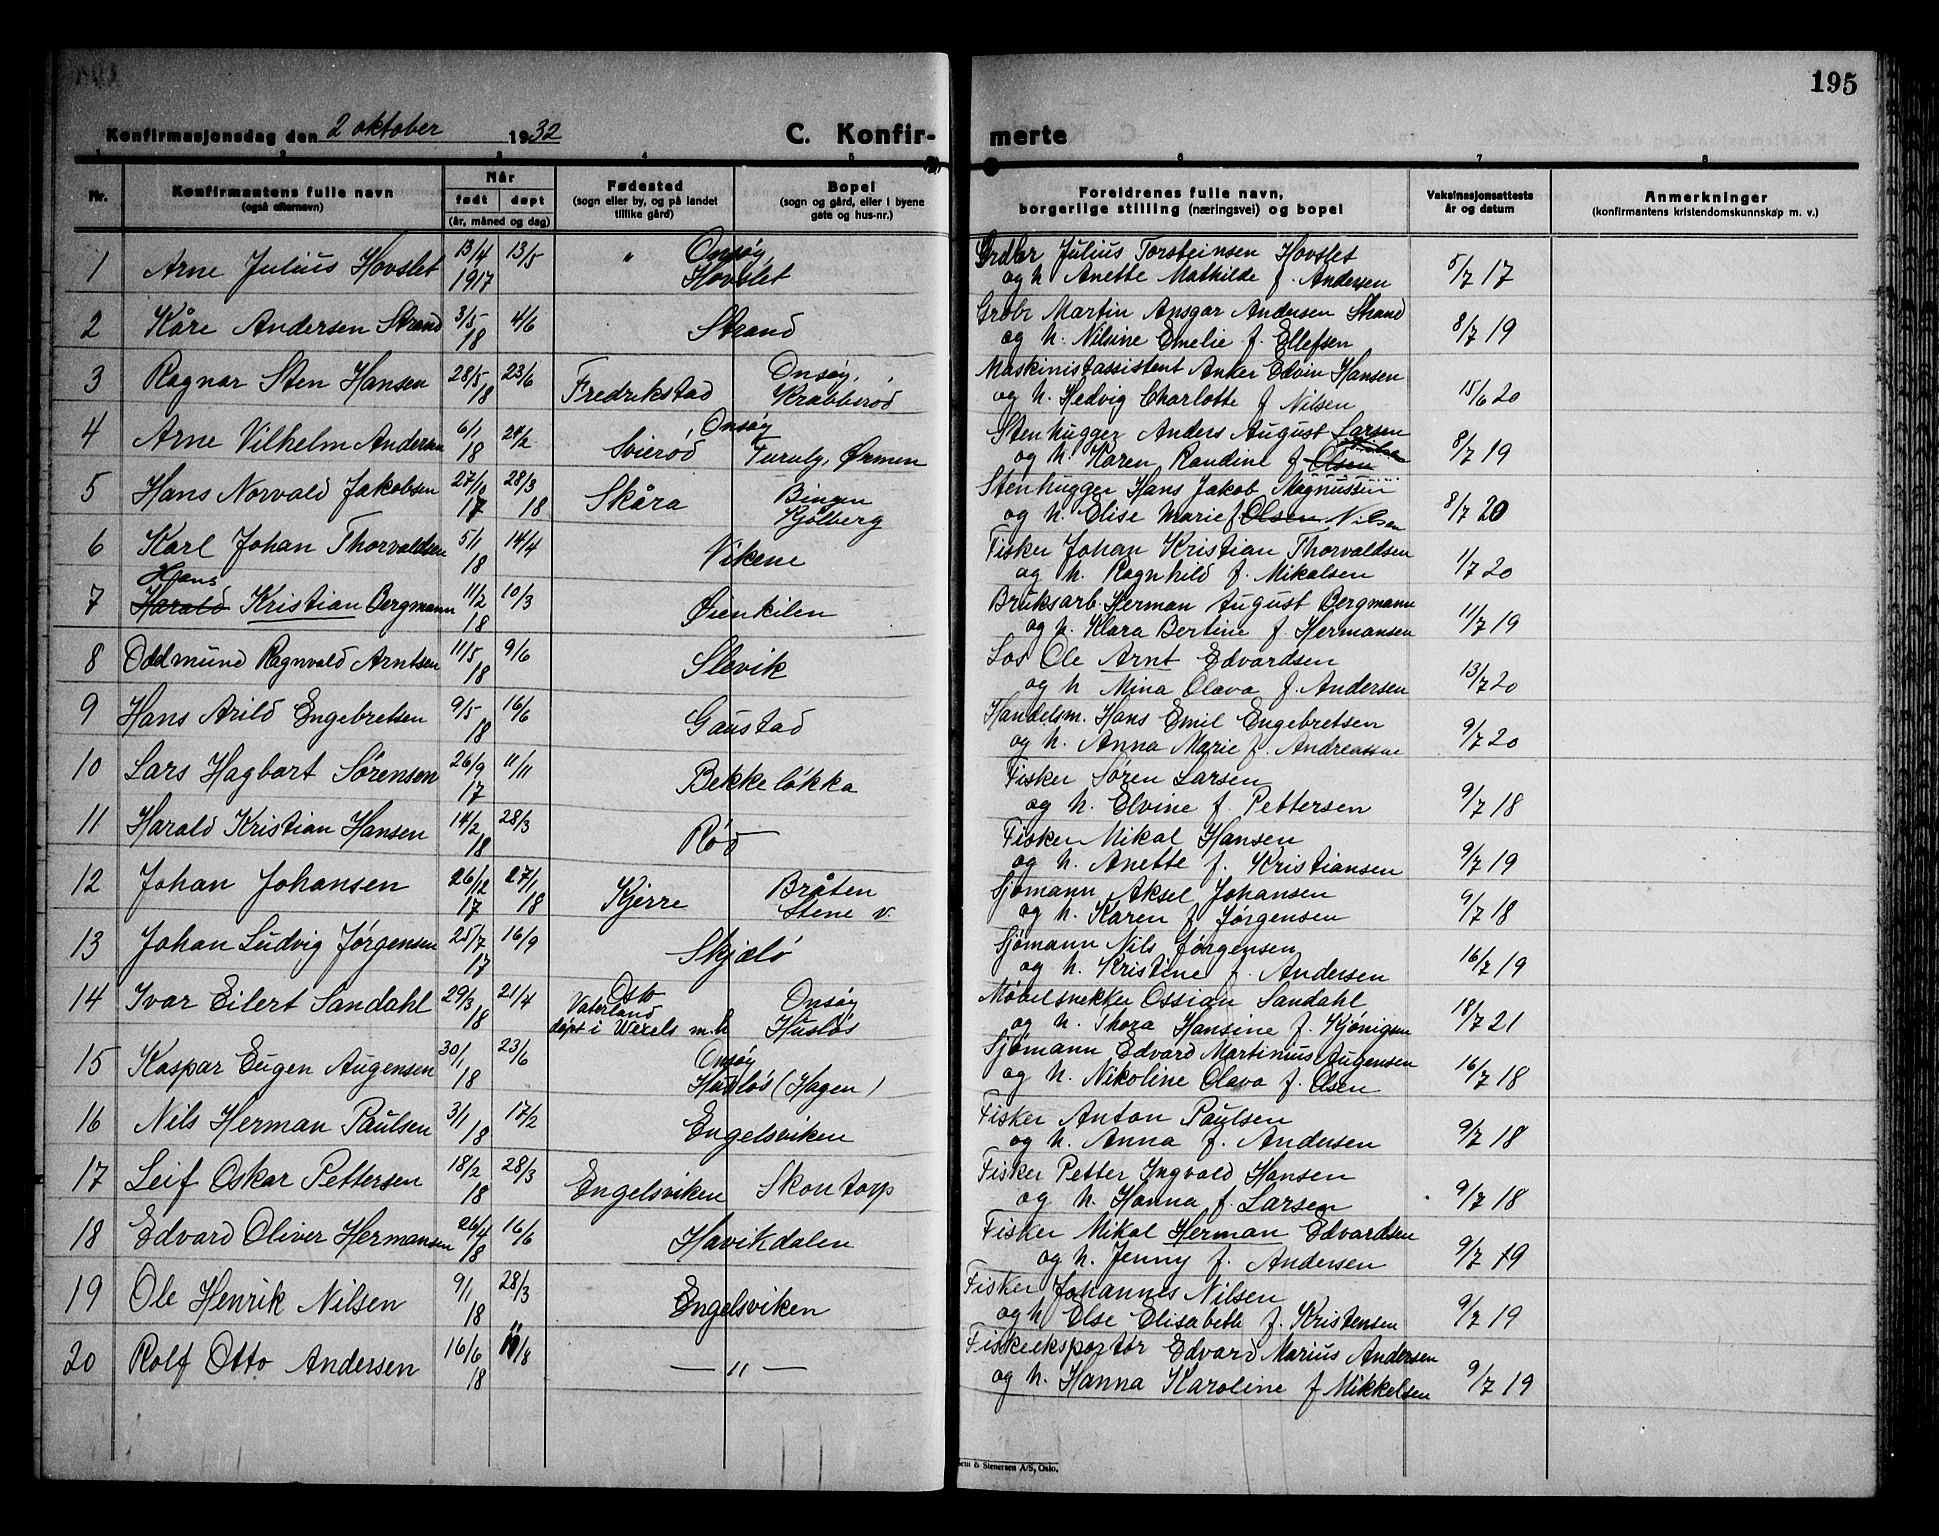 195
Konfirmasjonsdag den 2 oktober 1932
C. Konfir-
merte
1 2 3 4 5 6 7 8
Nr.
Konfirmantens fulle navn
(også efternavn)
Når
født døpt
(år, måned og dag)
Fødested
(sogn eller by, og på landet
tillike gård)
Bopel
(sogn og gård, eller i byene
gate og hus-nr.)
Foreldrenes fulle navn,
borgerlige stilling (næringsvei) og bopel
Vaksinasjonsattests
år og datum
Anmerkninger
(konfirmantens kristendomskunnskap m. v.)
1 Arne Julius Hovslet 13/4 1917 13/5 " Onsøy Hovslet
Grdbr Julius Torsteinsen Hovslet
og h Anette Mathilde f. Andersen 5/7 17
2 Kåre Andersen Strand 3/5 18 4/6 Strand
Grdbr Martin Ansgar Andersen Strand
og h. Nilsine Emelie f. Ellefsen 8/7 19
3 Ragnar Sten Hansen 28/5 18 23/6 Fredrikstad Onsøy, Krabberød
Maskinistassistent Anker Edvin Hansen
og h. Hedvig Charlotte f Nilsen 15/6 20
4 Arne Vilhelm Andersen 6/1 18 24/2 Onsøy Svierød Furulg, Ørmen
Stenhugger Anders August Larsen
og h. Karen Randine f Olsen 8/7 19
5 Hans Norvald Jakobsen 27/10 17 28/3 18 Skåra Bingen Kjølberg
Stenhugger Hans Jakob Magnussen
og h. Elise Marie f Olsen Nilsen 8/7 20
6 Karl Johan Thorvaldsen 5/1 18 14/4 Vikene
Fisker Johan Kristian Thorvaldsen
og h. Ragnhild f. Mikalsen 11/7 20
Hans
7 Harald Kristian Bergmann 11/2 18 10/3 Øienkilen
Bruksarb Herman August Bergmann
og h. Klara Bertine f. Hermansen 11/7 19
8 Oddmund Ragnvald Arntsen 11/5 18 9/6 Slevik
Los Ole Arnt Edvardsen
og h Mina Olava f. Andersen 13/7 20
9 Hans Arild Engebretsen 9/5 18 16/6 Gaustad
Handelsm. Hans Emil Engebretsen
og h. Anna Marie f. Andreassen 9/7 20
10 Lars Hagbart Sørensen 26/9 17 11/11 Bekkeløkka
Fisker Søren Larsen
og h. Elvine f. Pettersen 9/7 18
11 Harald Kristian Hansen 14/2 18 28/3 Rød
Fisker Mikal Hansen
og h. Anette f. Kristiansen 9/7 19
12 Johan Johansen 26/12 17 27/1 18 Kjerre Bråten Stene v.
Sjømann Aksel Johansen
og h. Karen f Jørgensen 9/7 18
13 Johan Ludvig Jørgensen 25/7 17 16/9 Skjælø
Sjømann Nils Jørgensen
og h. Kristine f. Andersen 16/7 19
14 Ivar Eilert Sandahl 29/3 18 21/4 Oslo Vaterland døpt i Wexels m.h Onsøy Husløs
Møbelsnekker Ossian Sandahl
og h. Thora Hansine f. Kjønigsen 18/7 21
15 Kaspar Eugen Augensen 30/1 18 23/6 Onsøy Husløs (Hagen)
Sjømann Edvard Martinius Augensen
og h. Nikoline Olava f. Olsen 16/7 18
16 Nils Herman Paulsen 3/1 18 17/2 Engelsviken
Fisker Anton Paulsen
og h. Anna f. Andersen 9/7 18
17 Leif Oskar Pettersen 18/2 18 28/3 Engelsviken Skontorp
Fisker Petter Ingvald Hansen
og h. Hanna f. Larsen 9/7 18
18 Edvard Oliver Hermansen 26/4 18 16/6 Havikdalen
Fisker Mikal Herman Edvardsen
og h. Jenny f. Andersen 9/7 19
19 Ole Henrik Nilsen 9/1 18 28/3 Engelsviken
Fisker Johannes Nilsen
og h Else Elisabeth f. Kristensen 9/7 19
20 Rolf Otto Andersen 16/6 18 11/8 — " —
Fiskeeksportør Edvard Marius Andersen
og h. Hanna Karoline f Mikkelsen 9/7 19
& Stenersen A/S, Oslo.